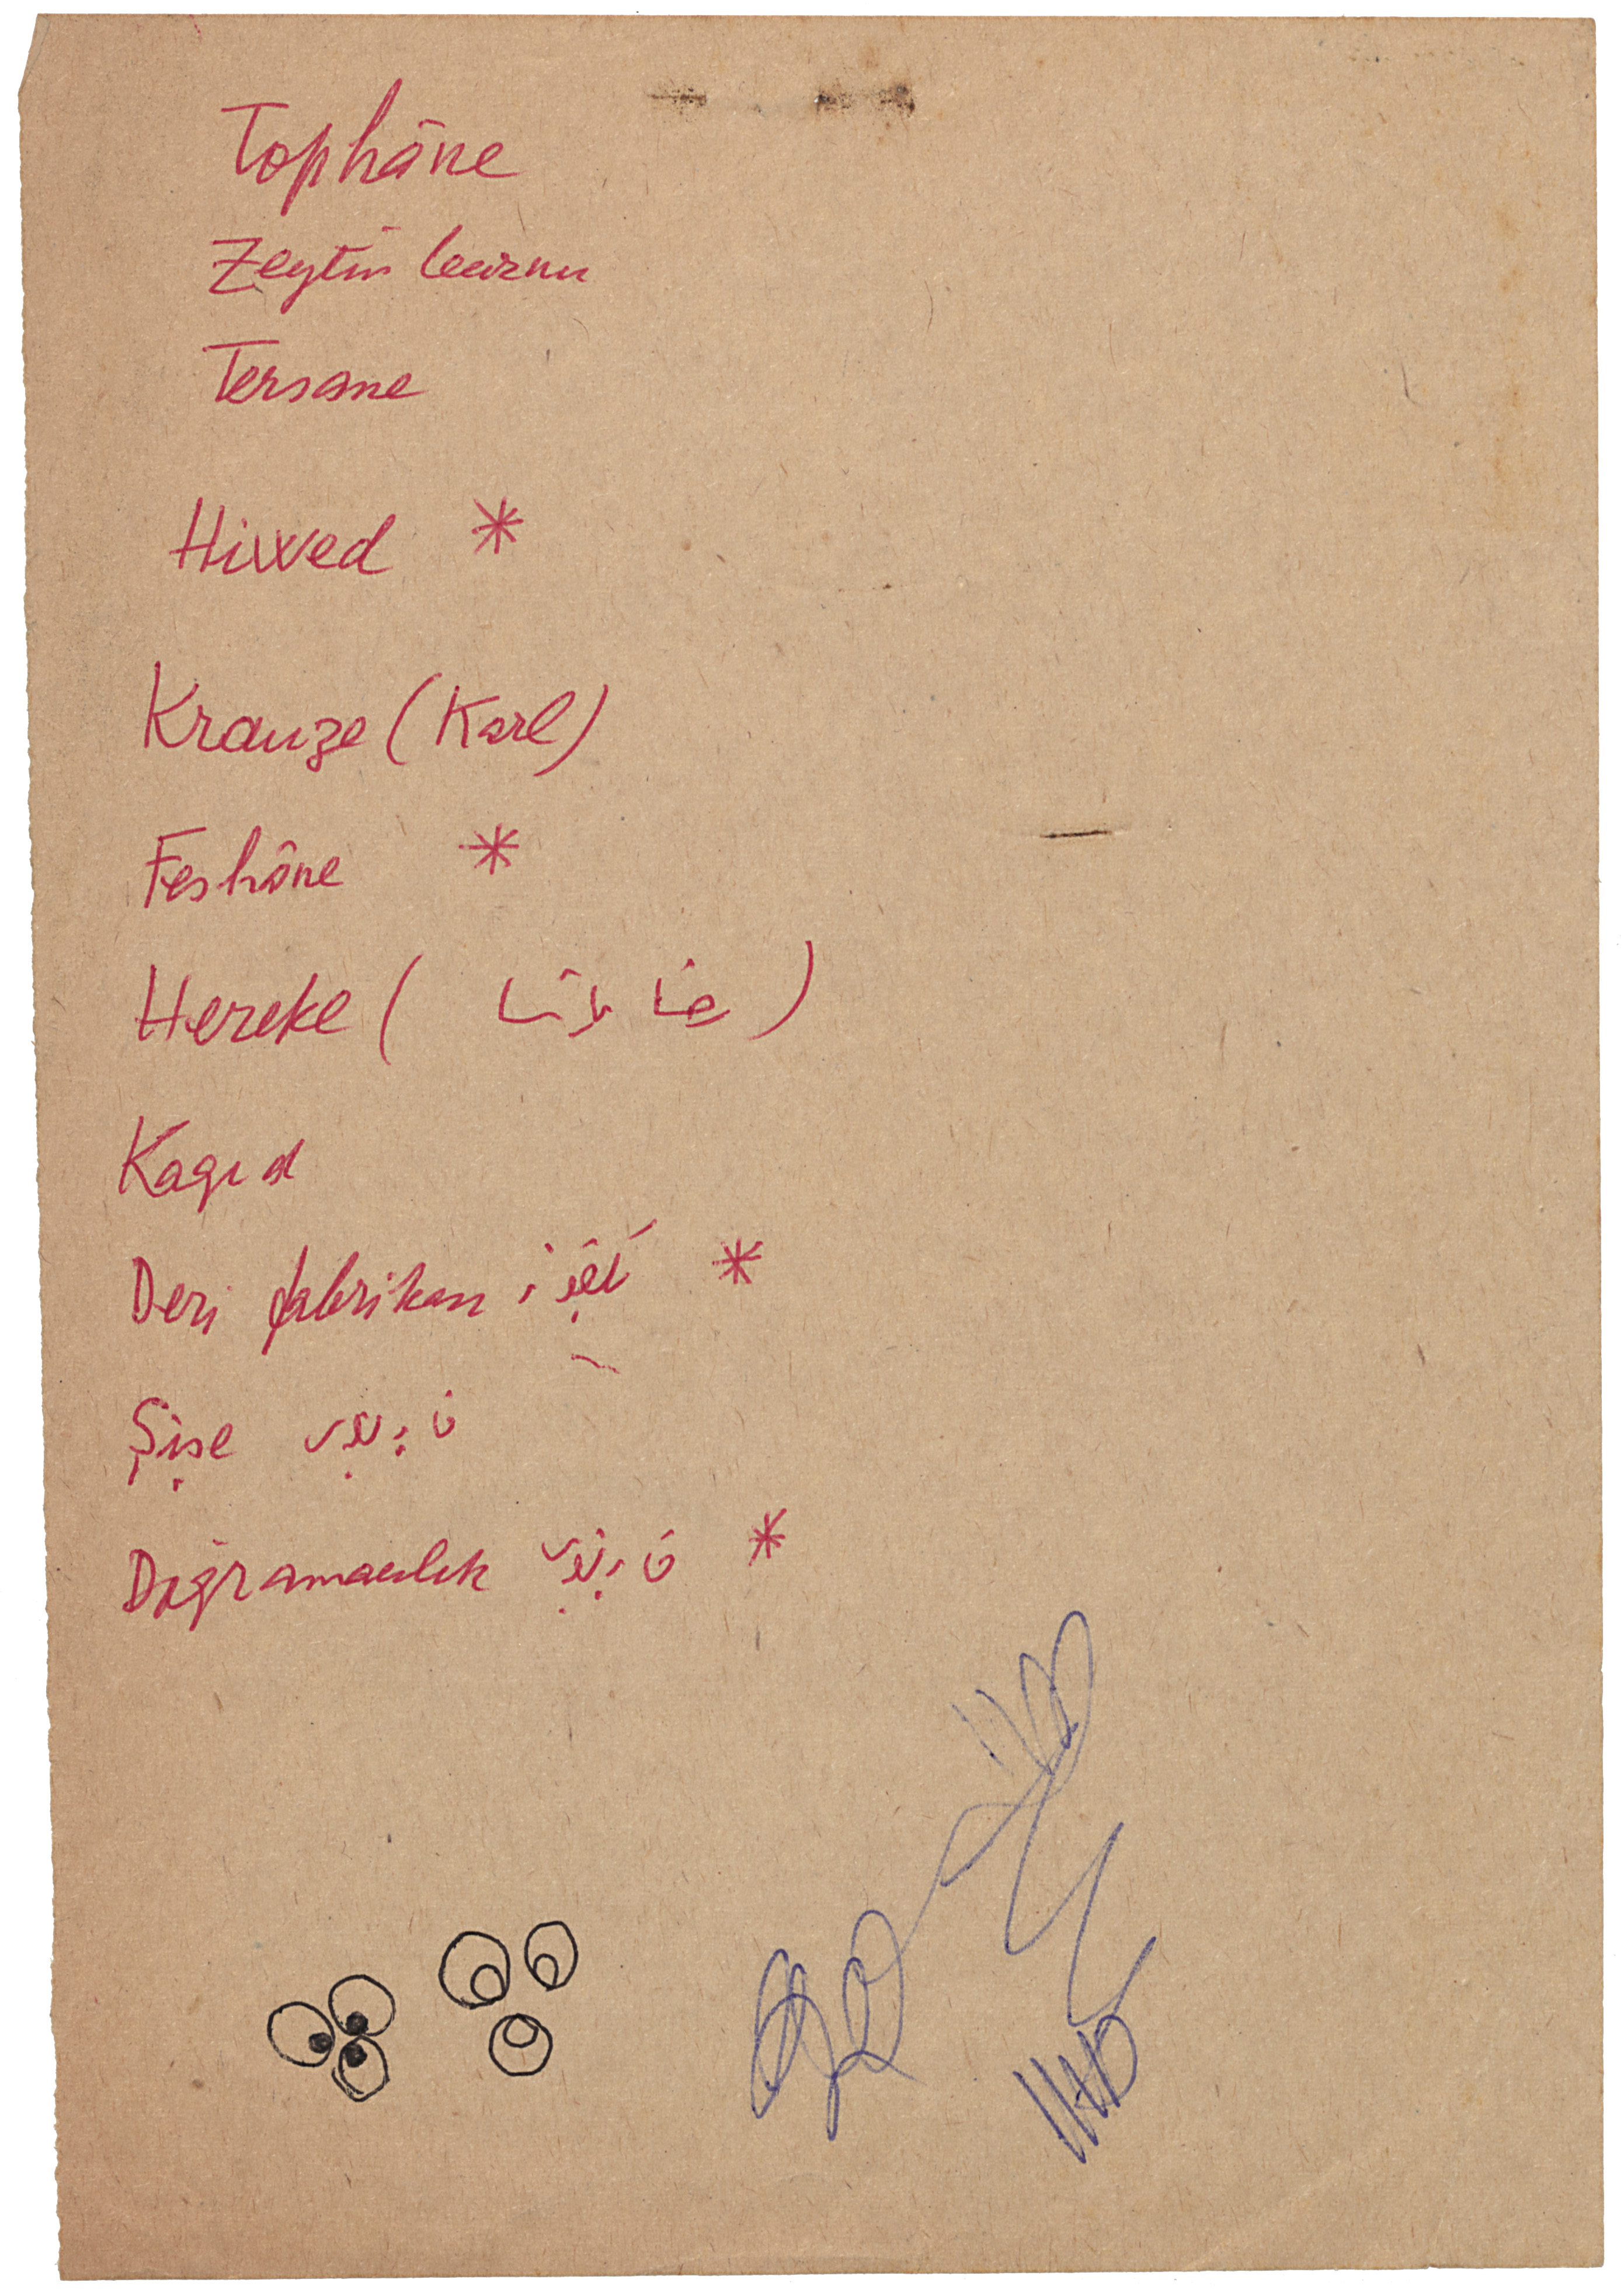 Tophâne
Zeytin burnu
Tersane
Hiwed *
Krauze (Karl)
Feshâne *
Hereke ( )
Kagıd
Deri fabrikası *
Şişe
Doğramacılık *